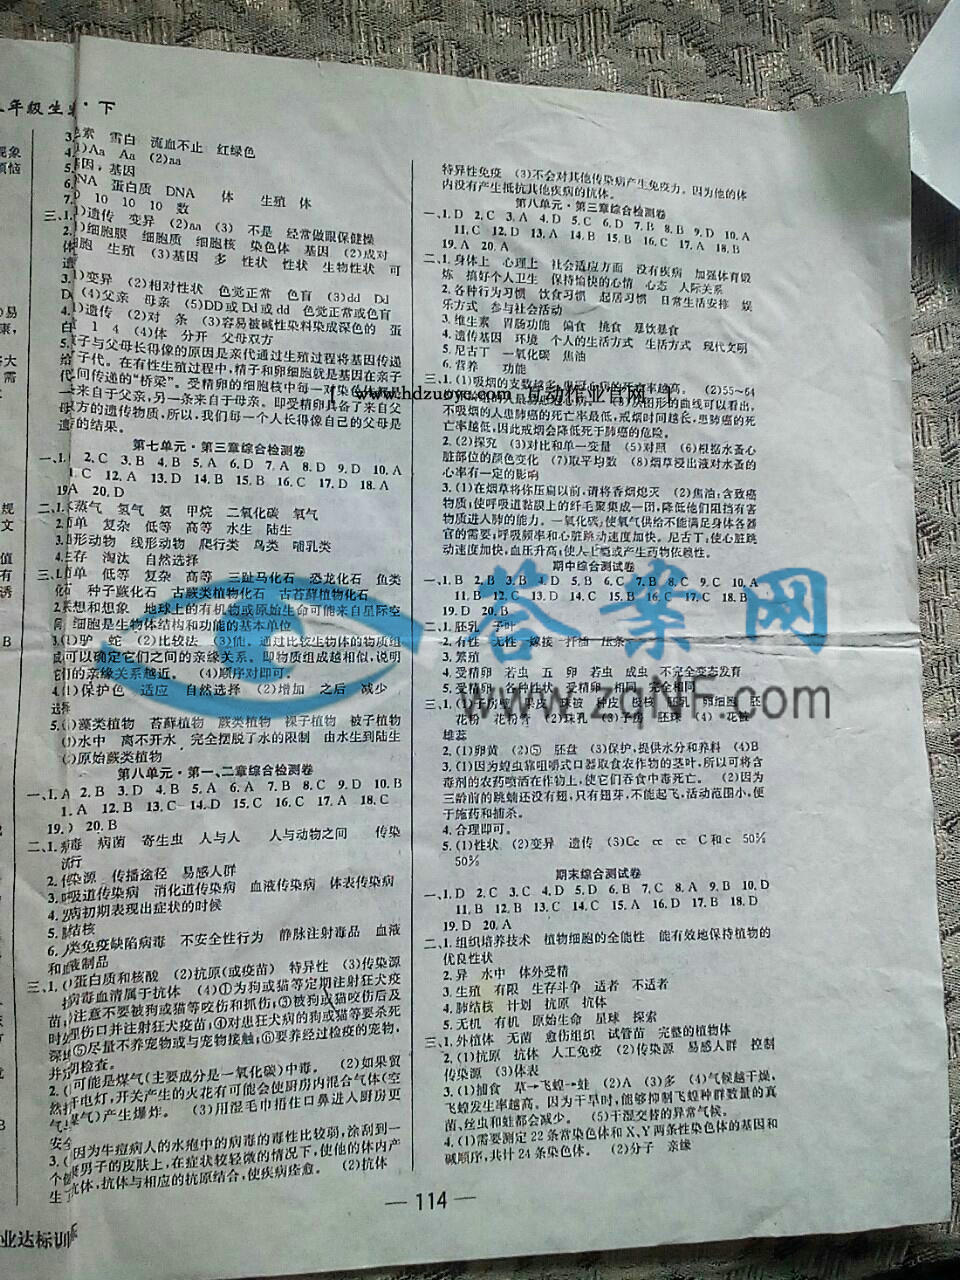 年级生 · 下
色素 雪白 流血不止 红绿色
Aa Aa (2)aa
基因,基因
蛋白质 DNA 体 生殖 体
10 10 10 数
三、1.
遗传 变异 (2)aa (3) 不是 经常做眼保健操
细胞膜 细胞质 细胞核 染色体 基因 (2)成对
生殖 (3)基因 多 性状 性状 生物性状 可
遗
3.
变异 (2)相对性状 色觉正常 色盲 (3)dd Dd
(4)父亲 母亲 (5)DD或Dd或dd 色觉正常或色盲
遗传 (2)对 条 (3)容易被碱性染料染成深色的 蛋
白 1 4 (4)体 分开 父母双方
子与父母长得像的原因是亲代通过生殖过程将基因传递
给子代。在有性生殖过程中,精子和卵细胞就是基因在亲子
间传递的“桥梁”。受精卵的细胞核中每一对染色体
来自于父亲,另一条来自于母亲。即受精卵具备了来自父
母方的遗传物质,所以,我们每一个人长得像自己的父母是
的结果。
第七单元·第三章综合检测卷
2.C 3.B 4.B 5.A 6.D 7.A 8.D 9.D 10.A
C 12.A 13.D 14.D 15.A 16.D 17.D 18.C
19.A 20.D
二、1.水蒸气 氢气 氨 甲烷 二氧化碳 氧气
简单 复杂 低等 高等 水生 陆生
形动物 线形动物 爬行类 鸟类 哺乳类
4.生存 淘汰 自然选择
三、1.简单 低等 复杂 高等 三趾马化石 恐龙化石 鱼类
化 种子蕨化石 古蕨类植物化石 古苔藓植物化石
联想和想象 地球上的有机物或原始生命可能来自星际空
间 细胞是生物体结构和功能的基本单位
3.(1)驴 蛇 (2)比较法 (3)能。通过比较生物体的物质组
成可以确定它们之间的亲缘关系。即物质组成越相似,说明
它们的亲缘关系越近。 (4)顺序对即可。
4.(1)保护色 适应 自然选择 (2)增加 之后 减少
选择
5.(1)藻类植物 苔藓植物 蕨类植物 裸子植物 被子植物
水中 离不开水 完全摆脱了水的限制 由水生到陆生
原始蕨类植物
第八单元·第一、二章综合检测卷
一、1.A 2.B 3.D 4.A 5.A 6.B 7.D 8.C 9.B 10.B
A 12.B 13.C 14.B 15.A 16.A 17.A 18.C
19. 20.B
二、1.病毒 病菌 寄生虫 人与人 人与动物之间 传染
流行
2.传染源 传播途径 易感人群
3.呼吸道传染病 消化道传染病 血液传染病 体表传染病
4.发病初期表现出症状的时候
5.肺结核
6.人类免疫缺陷病毒 不安全性行为 静脉注射毒品 血液
和血液制品
三、1.(1)蛋白质和核酸 (2)抗原(或疫苗) 特异性 (3)传染源
病毒血清属于抗体 (4)①为狗或猫等定期注射狂犬疫
苗;注意不要被狗或猫等咬伤和抓伤;③被狗或猫咬伤后及
时处理伤口并注射狂犬疫苗;④对患狂犬病的狗或猫等要杀死
深埋;⑤尽量不养宠物或与宠物接触;⑥要养经过检疫的宠物,
并定期检查。
2.(1)可能是煤气(主要成分是一氧化碳)中毒。 (2)如果贸
然打电灯,开关产生的火花有可能会使厨房内混合气体(空
气与煤气)产生爆炸。 (3)用湿毛巾捂住口鼻进入厨房更
安全
3.(1)因为牛痘病人的水疱中的病毒的毒性比较弱,涂刮到一
个健康男子的皮肤上,在症状较轻微的情况下,使他的体内产
生了抗体,抗体与相应的抗原结合,使疾病痊愈。 (2)抗体
特异性免疫 (3)不会对其他传染病产生免疫力。因为他的体
内没有产生抵抗其他疾病的抗体。
第八单元·第三章综合检测卷
一、1.D 2.C 3.A 4.D 5.C 6.D 7.B 8.B 9.D 10.A
11.C 12.D 13.A 14.D 15.B 16.C 17.A 18.B
19.A 20.A
二、1.身体上 心理上 社会适应方面 没有疾病 加强体育锻
炼 搞好个人卫生 保持愉快的心情 心态 人际关系
2.各种行为习惯 饮食习惯 起居习惯 日常生活安排 娱
乐方式 参与社会活动
3.维生素 胃肠功能 偏食 挑食 暴饮暴食
4.遗传基因 环境 个人的生活方式 生活方式 现代文明
5.尼古丁 一氧化碳 焦油
6.营养 功能
三、1.(1)吸烟的支数越多,患冠心病的死亡率越高。 (2)55~64
【 www.hdzuoye.com 互动作业官网 】
的曲线可以看出,
不吸烟的人患肺癌的死亡率最低,戒烟时间越长,患肺癌的死
亡率越低,因此戒烟会降低死于肺癌的危险。
2.(2)探究 (3)对比和单一变量 (5)对照 (6)根据水蚤心
脏部位的颜色变化 (7)取平均数 (8)烟草浸出液对水蚤的
心率有一定的影响
3.(1)在烟草将你压扁以前,请将香烟熄灭 (2)焦油:含致癌
物质;使呼吸道黏膜上的纤毛聚集成一团,降低他们阻挡有害
物质进入肺的能力。一氧化碳:使氧气供给不能满足身体各器
官的需要;呼吸频率和心脏跳动速度加快。尼古丁:使心脏跳
动速度加快,血压升高;使人上瘾或产生药物依赖性。
期中综合测试卷
一、1.B 2.B 3.A 4.D 5.B 6.C 7.B 8.C 9.C 10.A
11.B 12.C 13.D 14.D 15.B 16.C 17.A 18.B
19.D 20.B
二、1.胚乳 子叶
2.有性 无性 嫁接 扦插 压条
3.繁殖
4.受精卵 若虫 五 卵 若虫 成虫 不完全变态发育
5.受精卵 各种性状 受精卵 相同 完全相同
花粉 花粉管 (2)珠孔 (3)子房 胚珠 (4) 花被
雄蕊
2.(1)卵黄 (2)⑤ 胚盘 (3)保护,提供水分和养料 (4)B
3.(1)因为蝗虫靠咀嚼式口器取食农作物的茎叶,所以可将含
毒剂的农药喷洒在作物上,使它们吞食中毒死亡。 (2)因为
三龄前的跳蝻还没有翅,只有翅芽,不能起飞,活动范围小,便
于施药和捕杀。
4.合理即可。
5.(1)性状 (2)变异 遗传 (3)Cc cc cc C和c 50%
50%
期末综合测试卷
一、1.D 2.C 3.C 4.D 5.B 6.D 7.C 8.A 9.D 10.D
11.B 12.B 13.C 14.C 15.A 16.D 17.B 18.B
19.D 20.A
二、1.组织培养技术 植物细胞的全能性 能有效地保持植物的
优良性状
2.异 水中 体外受精
3.生殖 有限 生存斗争 适者 不适者
4.肺结核 计划 抗原 抗体
5.无机 有机 原始生命 星球 探索
三、1.外植体 无菌 愈伤组织 试管苗 完整的植物体
2.(1)抗原 抗体 人工免疫 (2)传染源 易感人群 控制
传染源 (3)体表
3.(1)捕食 草→飞蝗→蛙 (2)A (3)多 (4)气候越干燥,
飞蝗发生率越高。因为干旱时,能够抑制飞蝗种群数量的真
菌、丝虫和蛙都会减少。 (5)干湿交替的异常气候。
4.(1)需要测定22条常染色体和X、Y两条性染色体的基因和
碱顺序,共计24条染色体。 (2)分子 亲缘
— 114 —
业达标训
答案网
www.zqNF.com